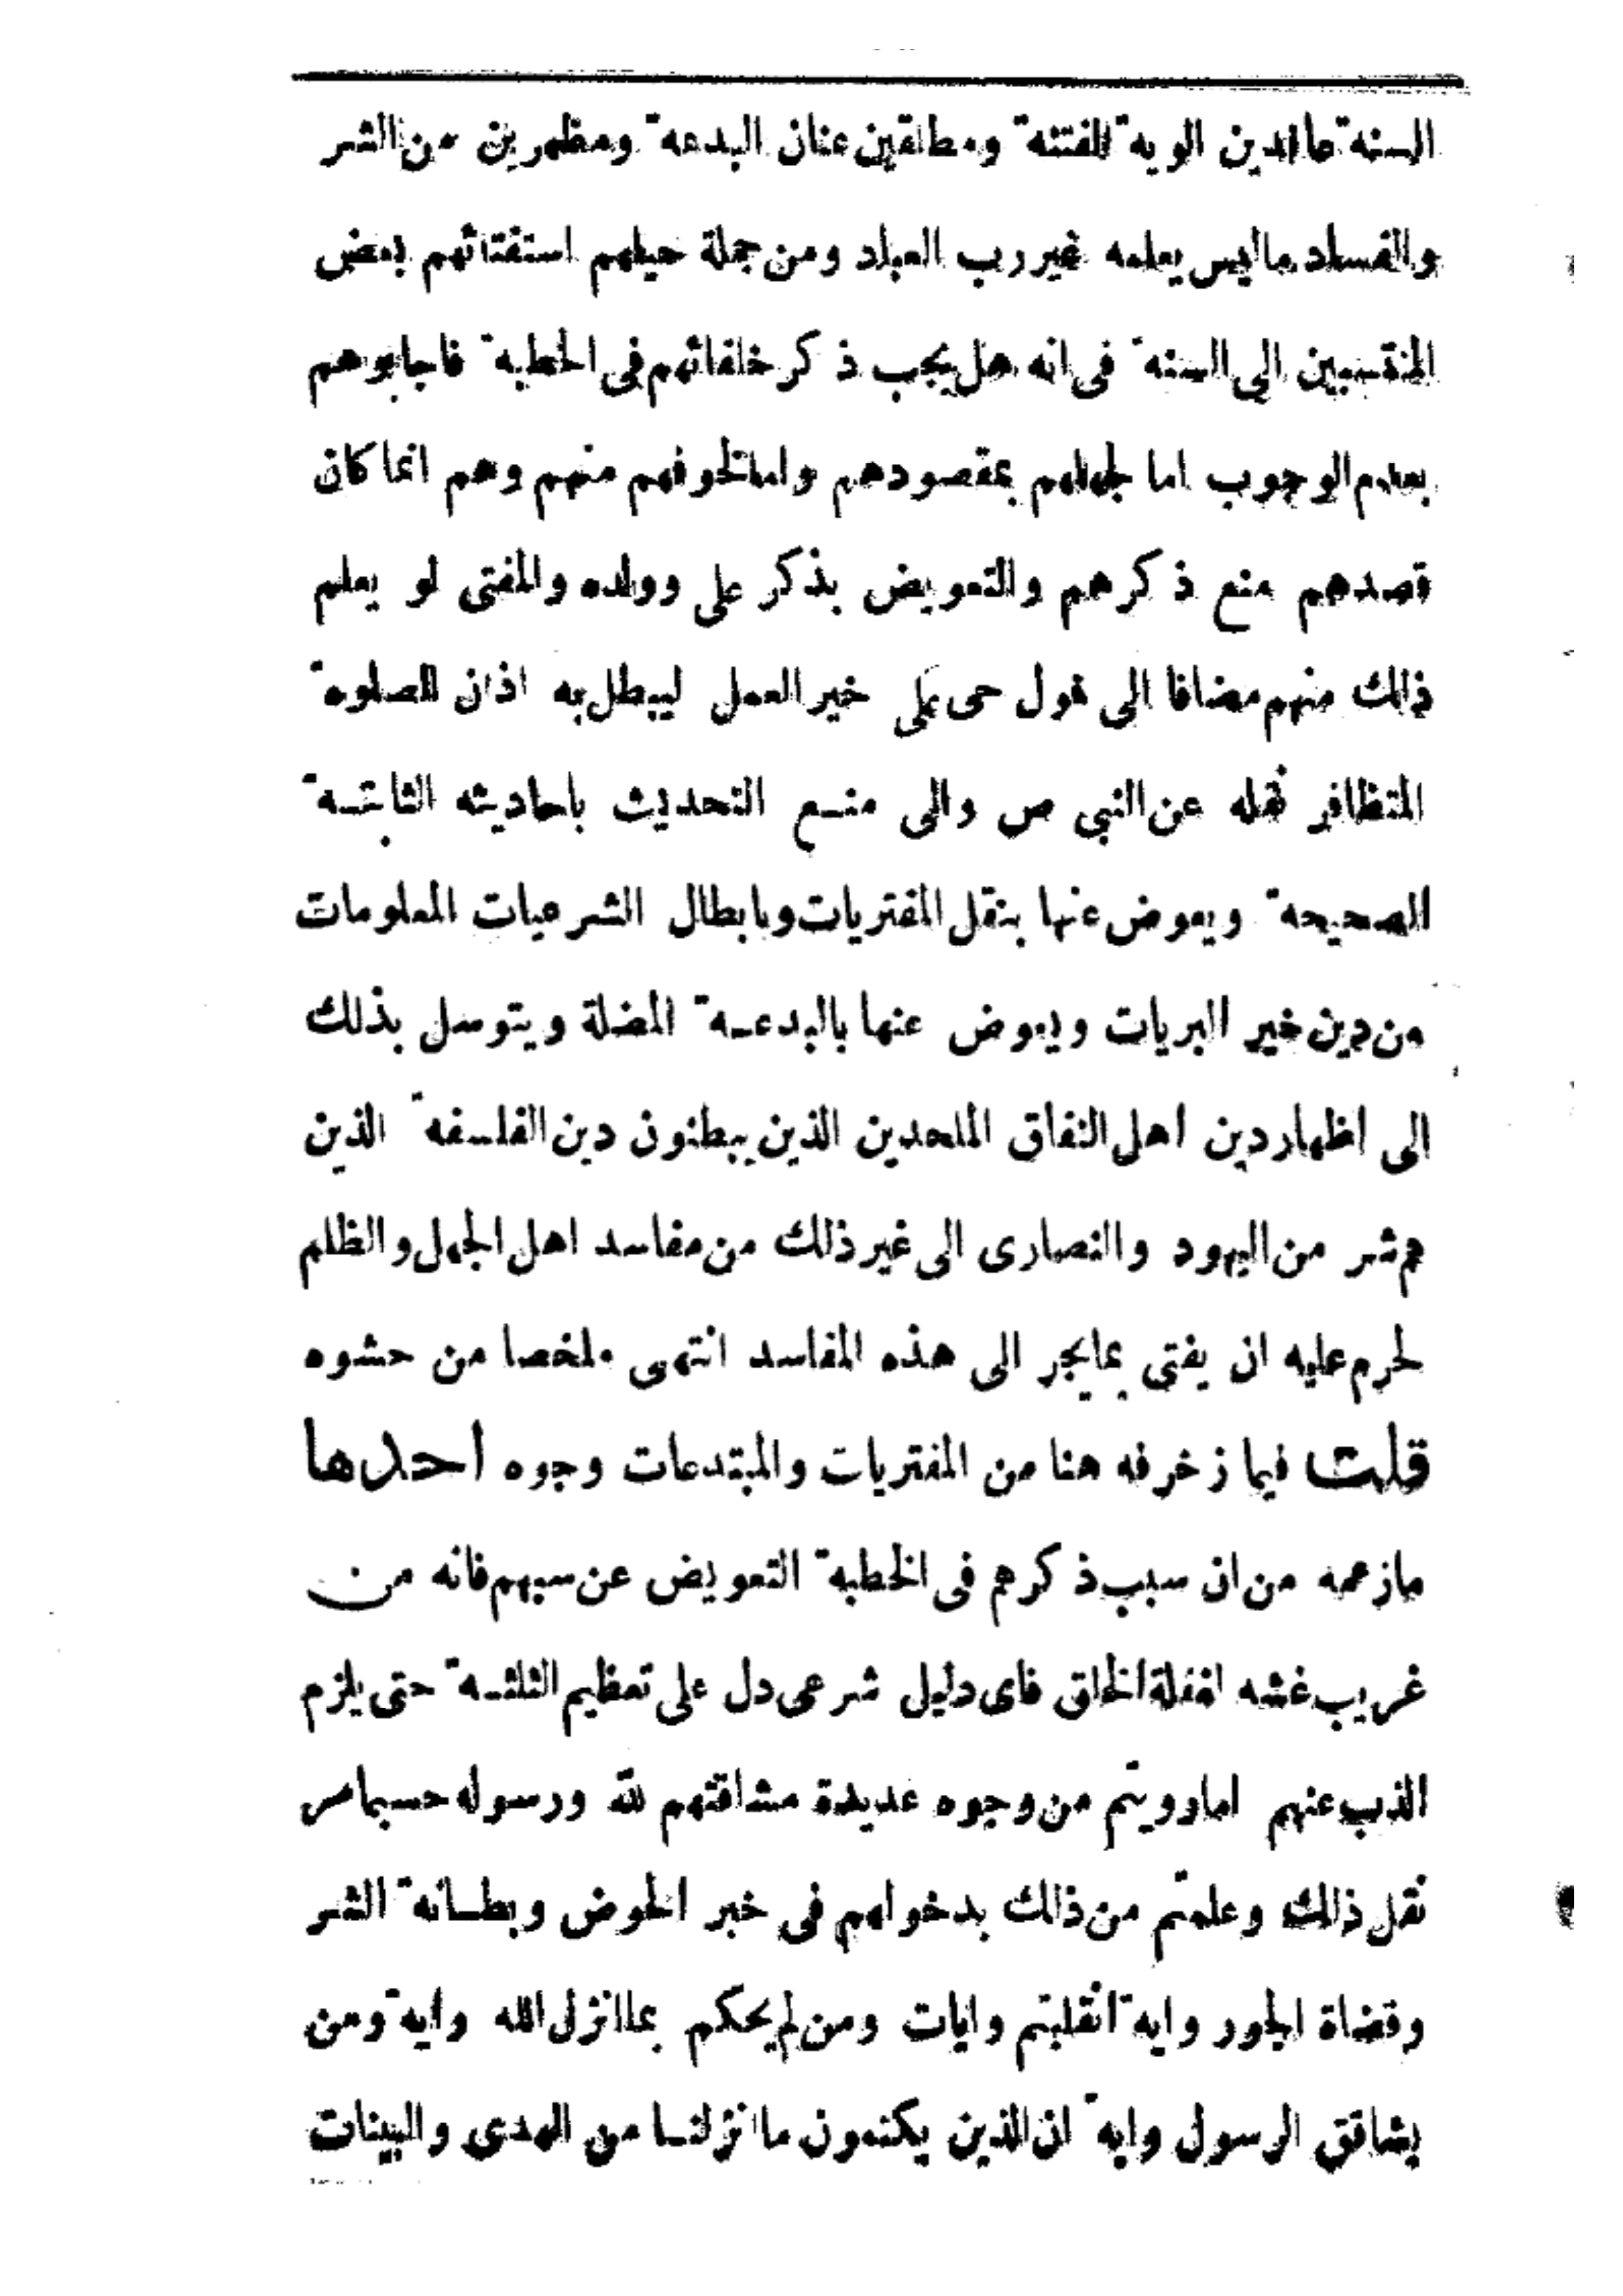 السنه ّ عاقدين الويه ّ للفتنه ّ ومطلقين عنان البدعه ّ ومظهرين من الشر
والفساد ماليس يعلمه غير رب العباد ومن جملة حيلهم استفتائهم بعض
المنتسبين الى السنه ّ فى انه هل يجب ذكر خلفائهم فى الخطبه ّ فاجابوهم
بعدم الوجوب اما لجهلهم بمقصودهم واما لخوفهم منهم وهم انما كان
قصدهم منع ذكرهم والتعويض بذكر على وولده والمفتى لو يعلم
ذلك منهم مضافا الى قول حى على خير العمل ليبطل به اذان الصلوه ّ
المتظافر نقله عن النبى ص والى منع التحديث باحاديثه الثابتـه ّ
الصحيحه ّ ويعوض عنها بنقل المفتريات وبابطال الشرعيات المعلومات
من دين خير البريات ويعوض عنها بالبدعـه ّ المضلة ويتوسل بذلك
الى اظهار دين اهل النفاق الملحدين الذين يبطنون دين الفلسفه ّ الذين
هم شر من اليهود والنصارى الى غير ذلك من مفاسد اهل الجهل والظلم
لحرم عليه ان يفتى بمايجر الى هذه المفاسد انتهى ملخصا من حشوه
قلت فيما زخرفه هنا من المفتريات والمبتدعات وجوه احدها
مازعمه من ان سبب ذكرهم فى الخطبه ّ التعويض عن سبهم فانه من
غريب غشه لغفلة الخلق فاى دليل شرعى دل على تعظيم الثلثـه ّ حتى يلزم
الذب عنهم اما رويتم من وجوه عديدة مشاقتهم لله ورسوله حسبما مر
نقل ذلك وعلمتم من ذلك بدخولهم فى خبر الحوض وبطـانه ّ الشر
وقضاة الجور وايه ّ انقلبتم وايات ومن لم يحكم بما انزل الله وايه ّ ومن
يشاقق الرسول وايه ّ ان الذين يكتمون ما انزلنـا من الهدى والبينات